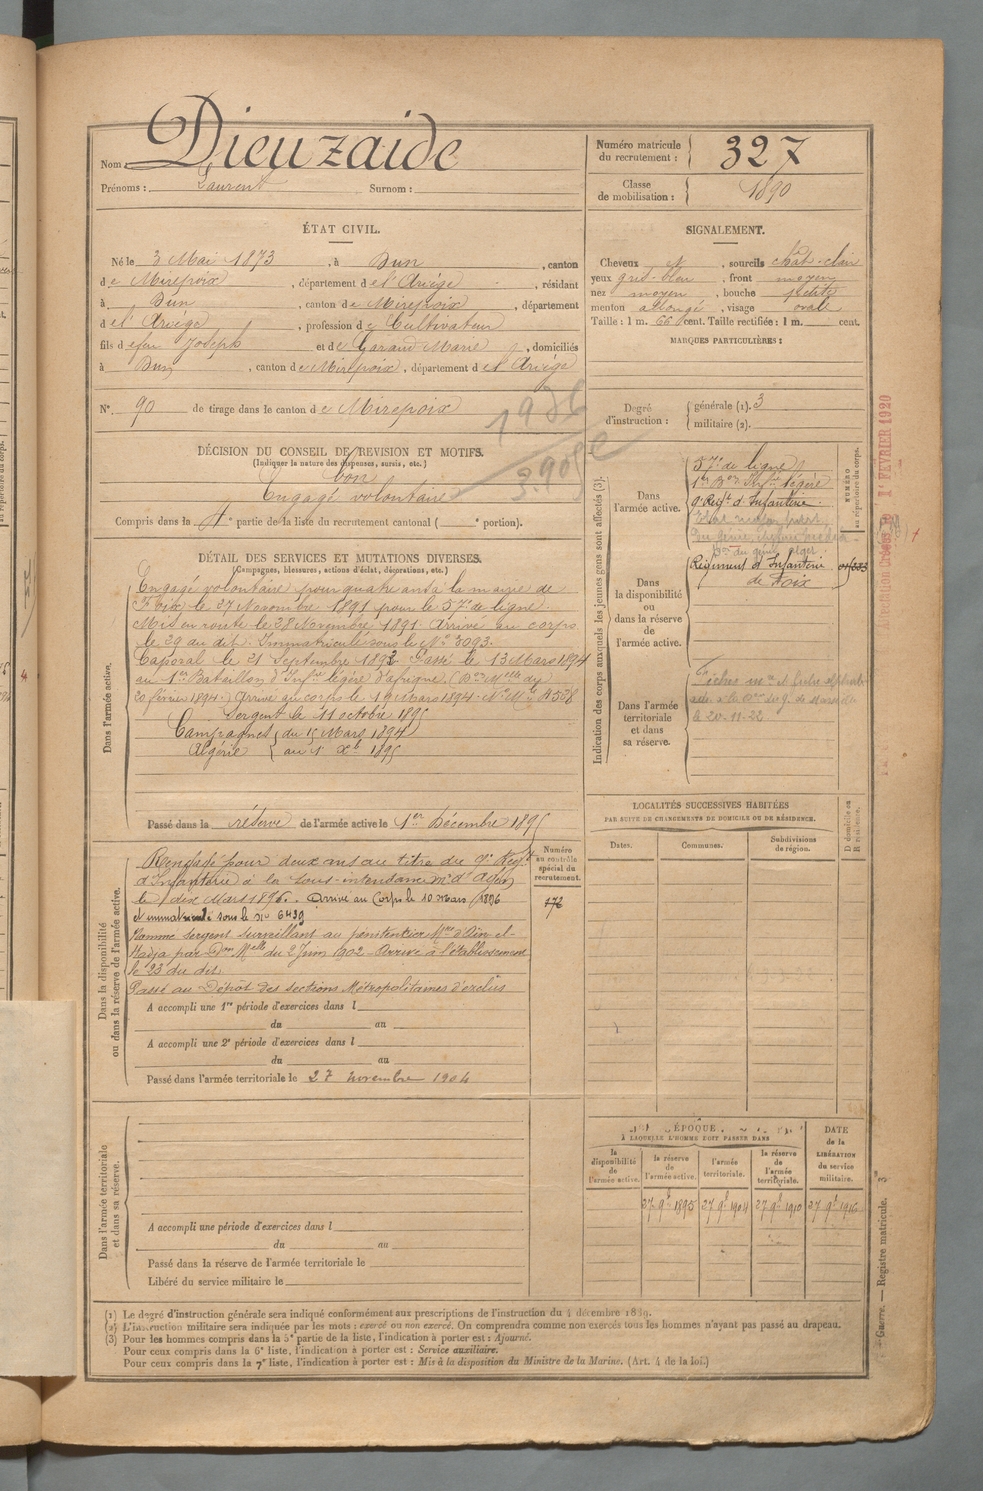 Nom : Dieuzaide
Prénoms : Laurent Surnom :
Numéro matricule
du recrutement : 327
Classe
de mobilisation : 1890
ÉTAT CIVIL.
Né le 3 Mai 1873, à Dun, canton
de Mirepoix, département de l'Ariège, résidant
à Dun, canton de Mirepoix, département
de l'Ariège, profession de Cultivateur
fils de feu Joseph et de Garaud Marie, domiciliés
à Dun, canton de Mirepoix, département de l'Ariège
N° 90 de tirage dans le canton de Mirepoix
SIGNALEMENT.
Cheveux d, sourcils chât-clair
yeux gris-bleu, front moyen
nez moyen, bouche petite
menton allongé, visage oval
Taille : 1 m. 66 cent. Taille rectifiée : 1 m. cent.
MARQUES PARTICULIÈRES :
Degré
d'instruction : générale (1). 3
militaire (2).
DÉCISION DU CONSEIL DE REVISION ET MOTIFS.
(Indiquer la nature des dispenses, sursis, etc.)
bon
Engagé volontaire
Compris dans la 4e partie de la liste du recrutement cantonal ( e portion).
1986
DÉTAIL DES SERVICES ET MUTATIONS DIVERSES.
(Campagnes, blessures, actions d'éclat, décorations, etc.)
Dans l'armée active.
Engagé volontaire pour quatre ans à la mairie de
Foix le 27 Novembre 1891 pour le 57e de ligne.
Mis en route le 28 Novembre 1891. Arrivé au corps
le 29 au dit. Immatriculé sous le N° 3093.
Caporal le 21 Septembre 1892. Passé le 13 Mars 1894
au 1er Bataillon d'Infrie légère d'afrique (Don Mlle du
20 février 1894.) Arrivé au corps le 19 Mars 1894. N° Mle 4538
Sergent le 11 octobre 1895
Campagnes du 15 Mars 1894
Algérie au 1 Xbre 1895
Passé dans la réserve de l'armée active le 1er Décembre 1895
Indication des corps auxquels les jeunes gens sont affectés (3).
NUMÉRO
au répertoire du corps.
Dans
l'armée active.
57e de ligne
1er Bon Inf. légère
9e Regt d'Infanterie
Dans
la disponibilité
ou
dans la réserve
de
l'armée active.
Régiment d'Infanterie
de Foix
Dans l'armée
territoriale
et dans
sa réserve.
le 20-11-22
1er FEVRIER 1920
Dans la disponibilité
ou dans la réserve de l'armée active.
Numéro
au contrôle
spécial du
recrutement.
172
Rengagé pour deux ans au titre du 9e Regt
d'Infanterie à la Sous-intendance mre d'Agen
le dix Mars 1896. Arrivé au Corps le 10 Mars 1896
et immatriculé sous le No 6439
Nommé Sergent surveillant au pénitencier Mre d'Aïn-el-
Hadja par Don Mlle du 2 Juin 1902 - Arrivé à l'établissement
le 23 du dit.
Passé au Dépôt des sections Métropolitaines d'exclus
A accompli une 1re période d'exercices dans l
du au
A accompli une 2e période d'exercices dans l
du au
Passé dans l'armée territoriale le 27 novembre 1904
LOCALITÉS SUCCESSIVES HABITÉES
PAR SUITE DE CHANGEMENTS DE DOMICILE OU DE RÉSIDENCE.
Dates.
Communes.
Subdivisions
de région.
D domicile ou
R résidence.
Dans l'armée territoriale
et dans sa réserve.
A accompli une période d'exercices dans l
du au
Passé dans la réserve de l'armée territoriale le
Libéré du service militaire le
ÉPOQUE
À LAQUELLE L'HOMME DOIT PASSER DANS
DATE
de la
LIBÉRATION
du service
militaire.
la
disponibilité
de
l'armée active.
la réserve
de
l'armée active.
l'armée
territoriale.
la réserve
de
l'armée
territoriale.
27 9bre 1895 27 9bre 1904 27 9bre 1910 27 9bre 1916
(1) Le degré d'instruction générale sera indiqué conformément aux prescriptions de l'instruction du 4 décembre 1889.
(2) L'instruction militaire sera indiquée par les mots : exercé ou non exercé. On comprendra comme non exercés tous les hommes n'ayant pas passé au drapeau.
(3) Pour les hommes compris dans la 5e partie de la liste, l'indication à porter est : Ajourné.
Pour ceux compris dans la 6e liste, l'indication à porter est : Service auxiliaire.
Pour ceux compris dans la 7e liste, l'indication à porter est : Mis à la disposition du Ministre de la Marine. (Art. 4 de la loi.)
Guerre. — Registre matricule.